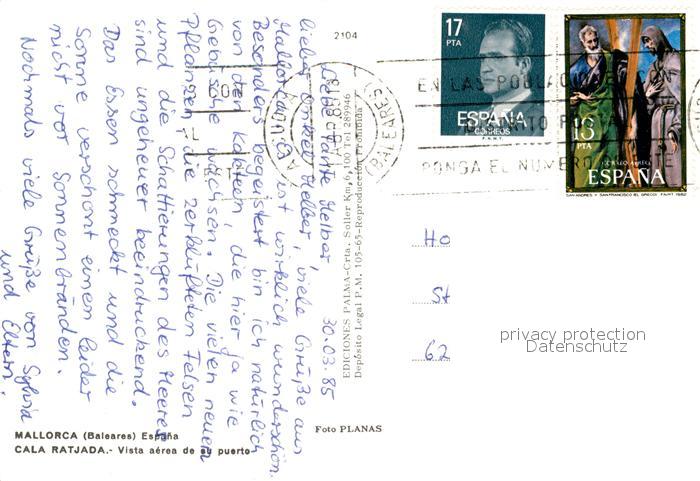 Liebe Tante Helber, 30.03.85
lieber Onkel Helber, viele Grüße aus
Mallorca. Es ist wirklich wunderschön.
Besonders begeistert bin ich natürlich
von den Kakteen, die hier ja wie
Gebüsche wachsen. Die vielen neuen
Pflanzen, die zerklüfteten Felsen
und die Schattierungen des Meeres
sind ungeheuer beeindruckend.
Das Essen schmeckt und die
Sonne verschont einen leider
nicht vor Sonnenbränden.
Nochmals viele Grüße von Sylvia
und Eltern.
2104
EDICIONES PALMA-Crta. Soller Km, 6,100 Tel 289946
Depósito Legal P.M. 105-65-Reproducción Prohibida
Foto PLANAS
MALLORCA (Baleares) España
CALA RATJADA.- Vista aérea de su puerto
17
PTA
ESPAÑA
CORREOS
F.N.M.T.
13
PTA
CORREO AEREO
ESPAÑA
SAN ANDRES Y SAN FRANCISCO (EL GRECO) F.N.M.T. 1982
EN LAS POBLAC
PONGA EL NUMERO
BALEARES
Ho
St
62
privacy protection
Datenschutz